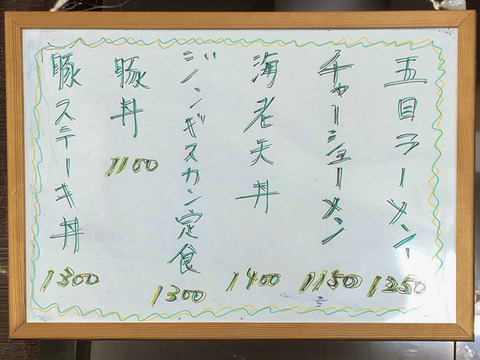 五目ラーメン
1250
チャーシューメン
1150
海老天丼
1400
ジンギスカン定食
1300
豚丼
1100
豚ステーキ丼
1300